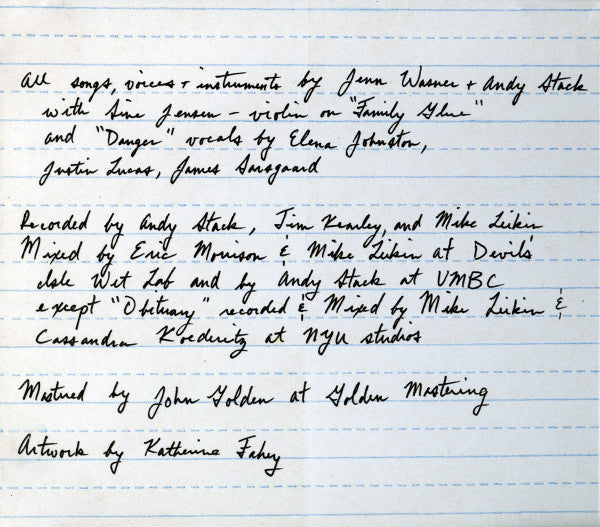 All songs, voices + instruments by Jenn Wasner + Andy Stack
with Sine Jensen - violin on "Family Glue"
and "Danger" vocals by Elena Johnston,
Justin Lucas, James Sarsgaard
Recorded by Andy Stack, Tim Kearley, and Mike Leikin
Mixed by Eric Morrison & Mike Leikin at Devil's
Isle Wet Lab and by Andy Stack at UMBC
except "Obituary" recorded & Mixed by Mike Leikin &
Cassandra Koederitz at NYU studios
Mastered by John Golden at Golden Mastering
Artwork by Katherine Fahey